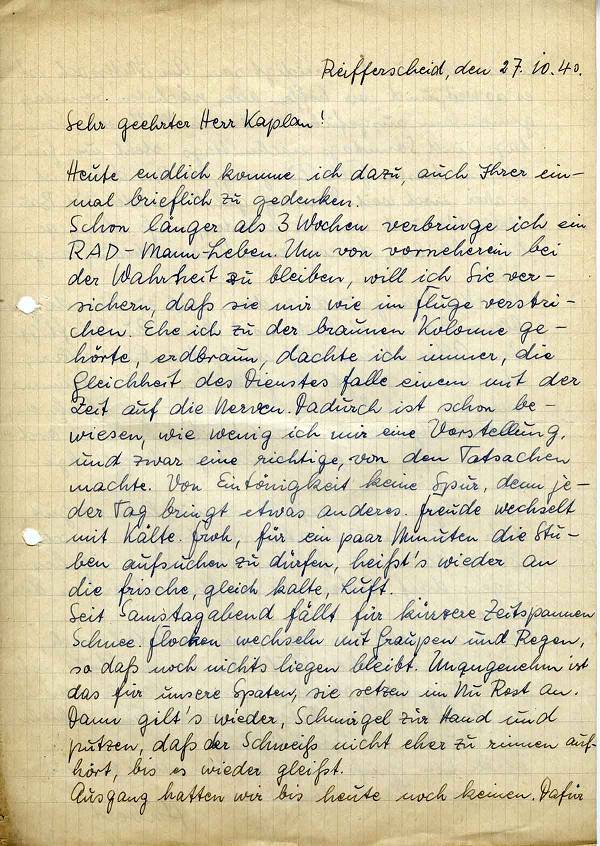 Reifferscheid, den 27. 10. 40.
Sehr geehrter Herr Kaplan!
Heute endlich komme ich dazu, auch Ihrer ein-
mal brieflich zu gedenken.
Schon länger als 3 Wochen verbringe ich ein
RAD-Mann-Leben. Um von vorneherein bei
der Wahrheit zu bleiben, will ich Sie ver-
sichern, daß sie mir wie im Fluge verstri-
chen. Ehe ich zu der braunen Kolonne ge-
hörte, erdbraun, dachte ich immer, die
Gleichheit des Dienstes falle einem mit der
Zeit auf die Nerven. Dadurch ist schon be-
wiesen, wie wenig ich mir eine Vorstellung,
und zwar eine richtige, von den Tatsachen
machte. Von Eintönigkeit keine Spur, denn je-
der Tag bringt etwas anderes. Freude wechselt
mit Kälte. Froh, für ein paar Minuten die Stu-
ben aufsuchen zu dürfen, heißt's wieder an
die frische, gleich kalte, Luft.
Seit Samstagabend fällt für kürzere Zeitspannen
Schnee. Flocken wechseln mit Graupen und Regen,
so daß noch nichts liegen bleibt. Unangenehm ist
das für unsere Spaten, sie setzen im Nu Rost an.
Dann gilt's wieder, Schmirgel zur Hand und
putzen, daß der Schweiß nicht eher zu rinnen auf-
hört, bis es wieder gleißt.
Ausgang hatten wir bis heute noch keinen. Dafür